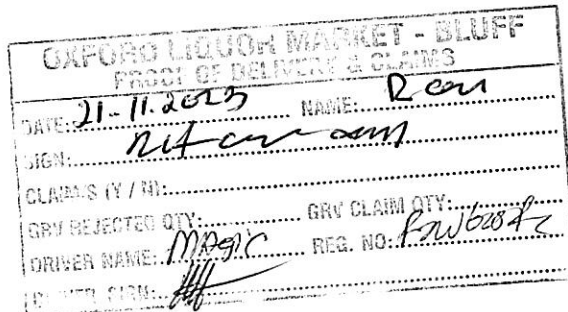 OXFORD LIQUOR MARKET - BLUFF
PROOF OF DELIVERY & CLAIMS
DATE: 21-11-2023 NAME:
SIGN:
CLAIMS (Y / N):
GRV REJECTED QTY: GRV CLAIM QTY:
DRIVER NAME: MAGIC REG. NO:
DRIVER SIGN: